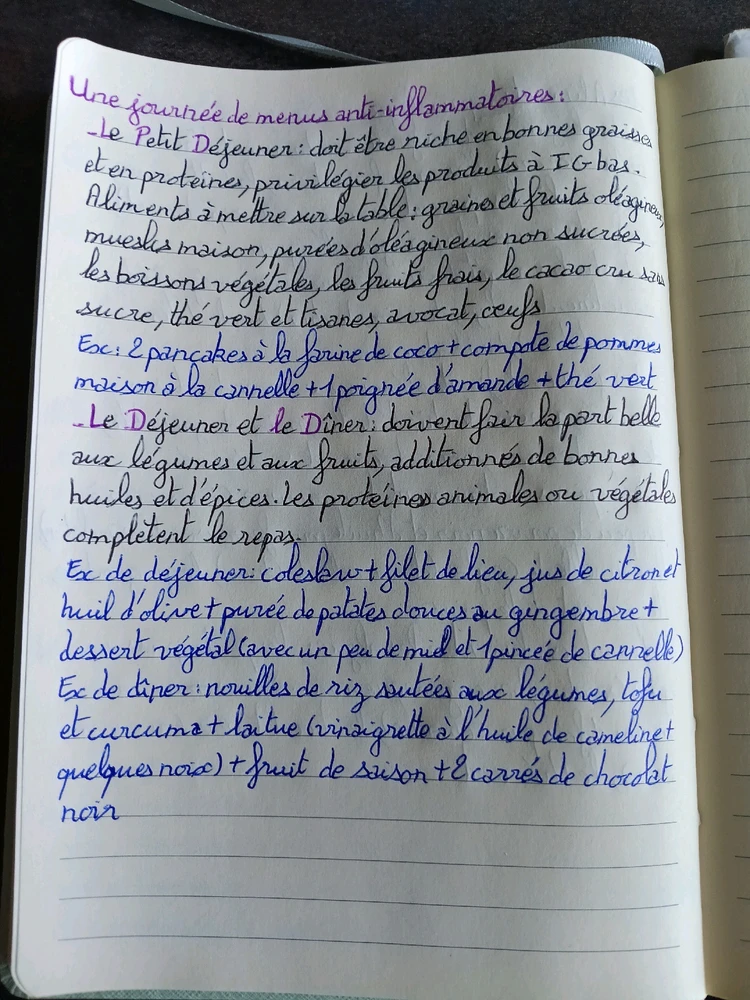 Une journée de menus anti-inflammatoires :
-Le Petit Déjeuner : doit être riche en bonnes graisses
et en proteines, privilégier les produits à IG bas.
Aliments à mettre sur la table : graines et fruits oléagineux,
mueslis maison, purées d'oléagineux non sucrées,
les boissons végétales, les fruits frais, le cacao cru sans
sucre, thé vert et tisanes, avocat, œufs
Ex : 2 pancakes à la farine de coco + compote de pommes
maison à la cannelle + 1 poignée d'amande + thé vert
-Le Déjeuner et le Dîner : doivent fair la part belle
aux légumes et aux fruits, additionnés de bonnes
huiles et d'épices. Les protéines animales ou végétales
complètent le repas.
Ex de déjeuner : coleslaw + filet de lieu, jus de citron et
huil d'olive + purée de patates douces au gingembre +
dessert végétal (avec un peu de miel et 1 pincée de cannelle)
Ex de dîner : nouilles de riz sautées aux légumes, tofu
et curcuma + laitue (vinaigrette à l'huile de cameline +
quelques noix) + fruit de saison + 2 carrés de chocolat
noir